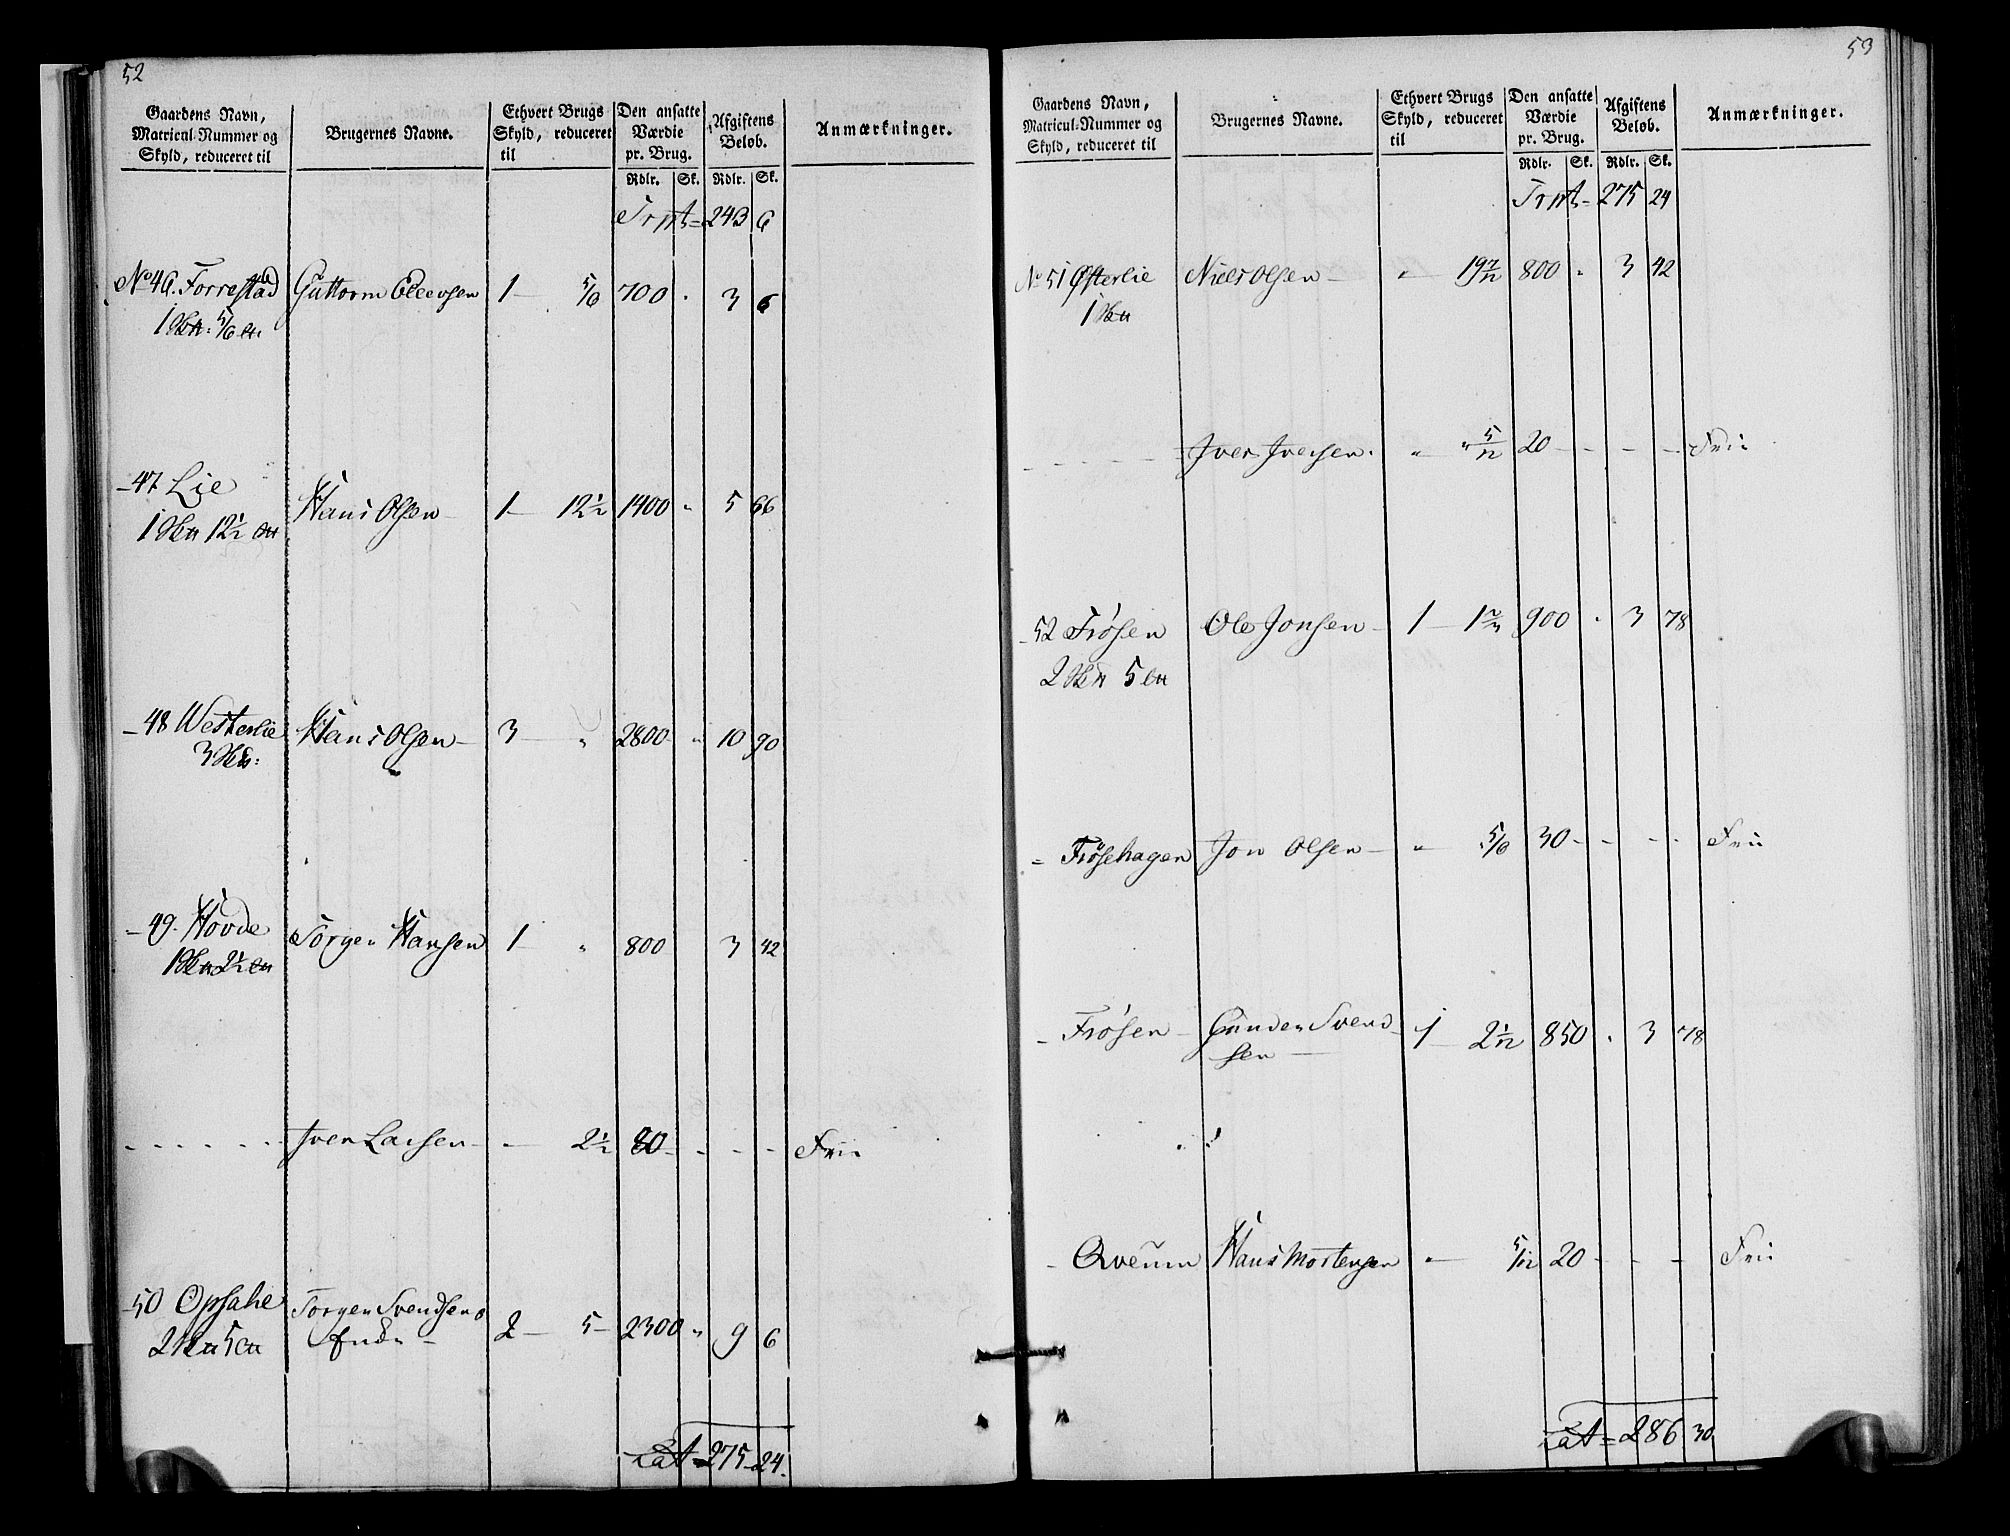 52
Gaardens Navn, Matricul-Nummer og Skyld, reduceret til | Brugernes Navne. | Ethvert Brugs Skyld, reduceret til | Den ansatte Værdie pr. Brug. | Afgiftens Beløb. | Anmærkninger.
Rdlr. Sk. Rdlr. Sk.
Trpt = 243 6
No 46. Forrestad Guttorm Ellevsen 1 — 5/6 700 " 3 6
1 5/6
- 47 Lie Hans Olsen — 1 — 12½ 1400 " 5 66
1 12½
- 48 Westerlie Hans Olsen — 3 — " 2800 — " 10 90
3
- 49. Hovde Torger Hansen 1 — " 800 3 42
1 2½
- - - - - - Iver Larsen — - 2½ 80 - - - - Frii
- 50 Opsahl Torger Svendsens
2 5 Enke — 2 — 5 — 2300 " 9 6
Lat = 275 24.
53
Gaardens Navn, Matricul-Nummer og Skyld, reduceret til | Brugernes Navne. | Ethvert Brugs Skyld, reduceret til | Den ansatte Værdie pr. Brug. | Afgiftens Beløb. | Anmærkninger.
Rdlr. Sk. Rdlr. Sk.
Trpt = 275 24
No 51 Østerlie Niels Olsen — " — 19 7/12 800 " 3 42
1
- - - - - - Iver Iversen. " — " 5/12 20 - - - - Frii
- 52 Frøsen Ole Jonsen — 1 — 1 2/3 900 " 3 78
2 5
- Frøsehagen Jon Olsen — " — 5/6 30 - - - - Frii
- Frøsen — Gunder Svend-
sen — 1 — 2 1/12 850 " 3 78
- Qveum Hans Mortensen " — 5/12 20 - - - - Frii
Lat = 286 30